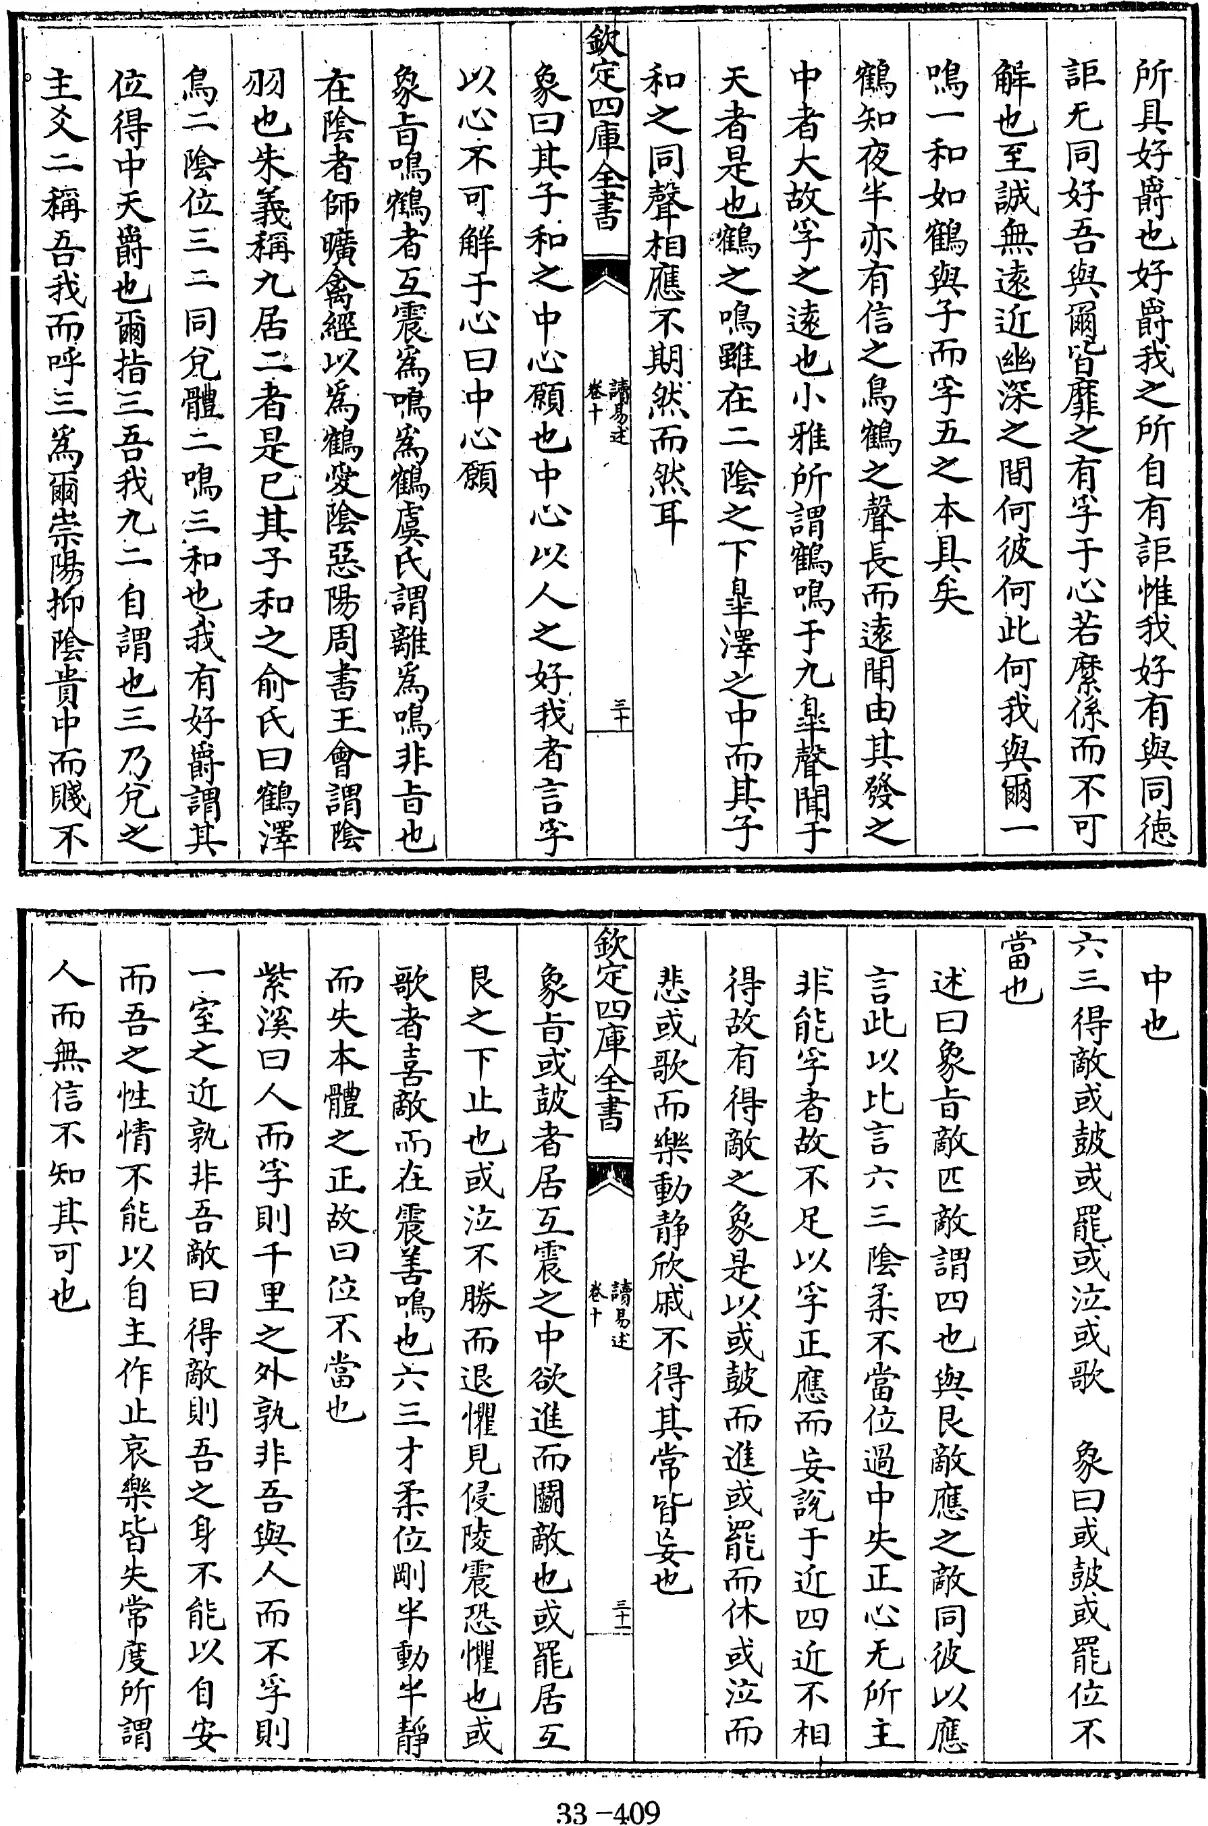 所具好爵也好爵我之所自有詎惟我好有與同德
詎无同好吾與爾皆靡之有孚于心若縻係而不可
解也至誠無遠近幽深之間何彼何此何我與爾一
鳴一和如鶴與子而孚五之本具矣
鶴知夜半亦有信之鳥鶴之聲長而遠聞由其發之
中者大故孚之遠也小雅所謂鶴鳴于九臯聲聞于
天者是也鶴之鳴雖在二陰之下臯澤之中而其子
和之同聲相應不期然而然耳
欽定四庫全書
讀易述
卷十
三十
象曰其子和之中心願也中心以人之好我者言孚
以心不可解于心曰中心願
象旨鳴鶴者互震為鳴為鶴虞氏謂離為鳴非旨也
在陰者師曠禽經以為鶴愛陰惡陽周書王會謂陰
羽也朱義稱九居二者是已其子和之俞氏曰鶴澤
鳥二陰位三二同兌體二鳴三和也我有好爵謂其
位得中天爵也爾指三吾我九二自謂也三乃兌之
主爻二稱吾我而呼三為爾崇陽抑陰貴中而賤不
中也
六三得敵或鼓或罷或泣或歌 象曰或鼓或罷位不
當也
述曰象旨敵匹敵謂四也與艮敵應之敵同彼以應
言此以比言六三陰柔不當位過中失正心无所主
非能孚者故不足以孚正應而妄說于近四近不相
得故有得敵之象是以或鼓而進或罷而休或泣而
悲或歌而樂動靜欣戚不得其常皆妄也
欽定四庫全書
讀易述
卷十
三十一
象旨或鼓者居互震之中欲進而鬭敵也或罷居互
艮之下止也或泣不勝而退懼見侵陵震恐懼也或
歌者喜敵而在震善鳴也六三才柔位剛半動半靜
而失本體之正故曰位不當也
紫溪曰人而孚則千里之外孰非吾與人而不孚則
一室之近孰非吾敵曰得敵則吾之身不能以自安
而吾之性情不能以自主作止哀樂皆失常度所謂
人而無信不知其可也
33-409